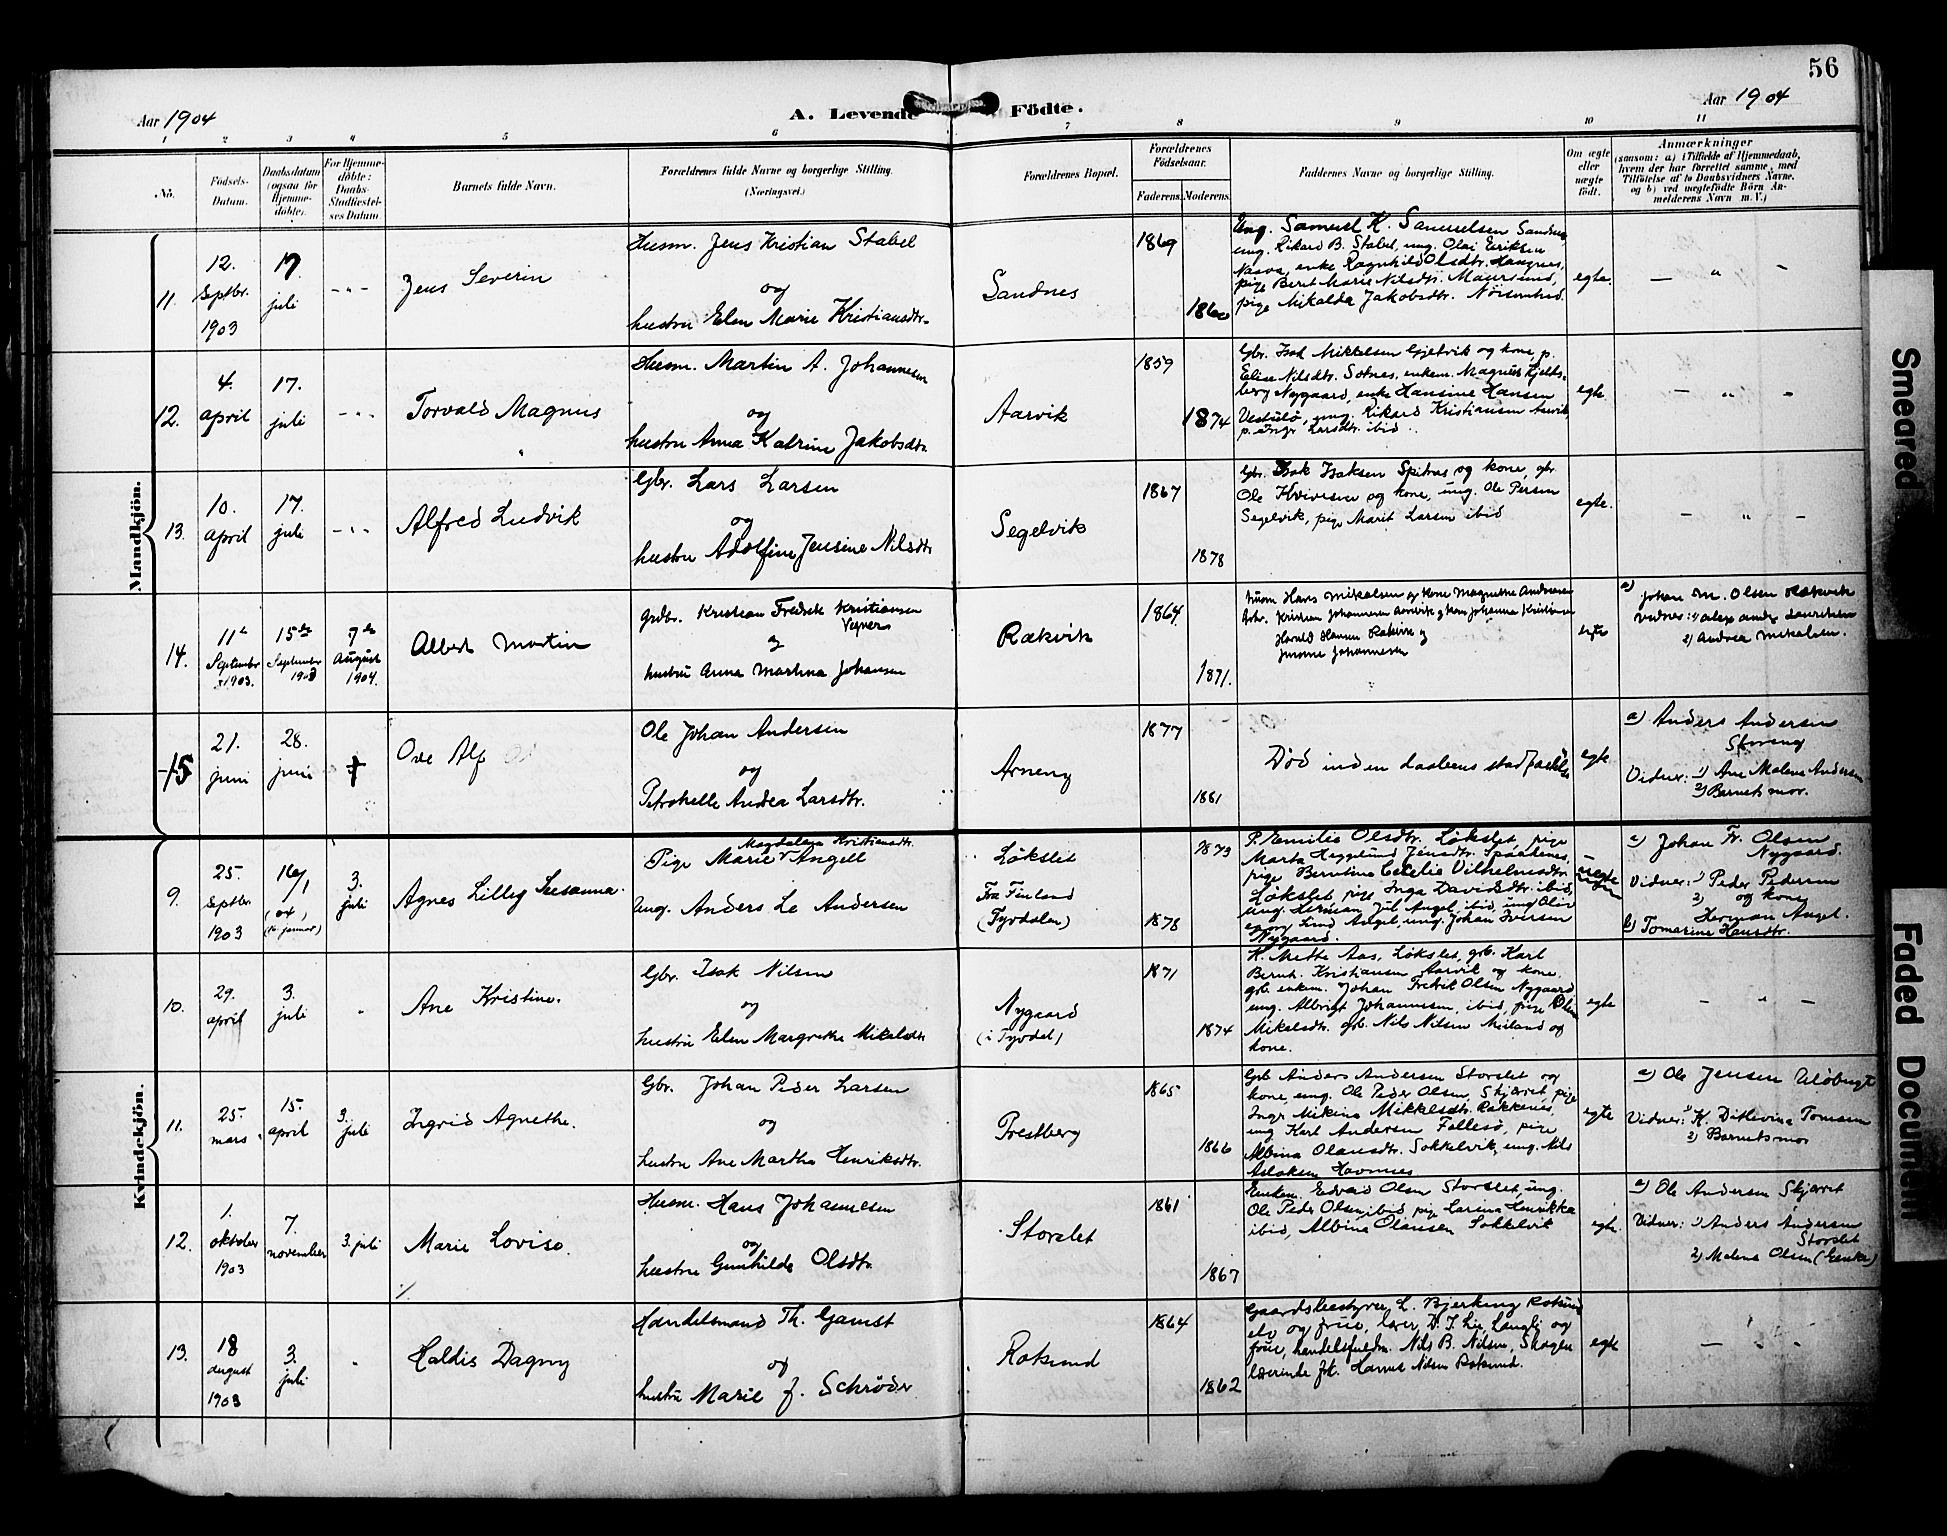 56
Aar 1904
A. Levende Födte.
Aar 1904
1 2 3 4 5 6 7 8 9 10 11
No.
Födsels-
Datum.
Daabsdatum
(ogsaa for
Hjemme-
döbte).
For Hjemme-
döbte:
Daabs-
Stadfæstel-
ses Datum
Barnets fulde Navn.
Forældrenes fulde Navne og borgerlige Stilling.
(Næringsvei.)
Forældrenes Bopæl.
Forældrenes
Födselsaar.
Faderens. Moderens.
Faddernes Navne og borgerlige Stilling.
Om ægte
eller
uægte
födt.
Anmærkninger
(saasom: a) i Tilfælde af Hjemmedaab,
hvem der har forrettet samme, med
Tilföielse af to Daabsvidners Navne,
og b) ved uægtefödte Börn An-
melderens Navn m. V.)
Mandkjön.
11.
12.
Septbr.
1903
17.
juli
Jens Severin
Husm. Jens Kristian Stabel
og
hustru Elen Marie Kristiansdtr.
Sandnes
1869
1860
Ung. Samuel K. Samuelsen Sandnes
ung. Rikard B. Stabel, ung. Olai Eriksen
enke Ragnhild Olsdtr. Haugnes,
pige Berit Marie Nilsdtr. Maursund,
pige Mikalda Jakobsdtr.
egte.
12.
4.
april
17.
juli
Torvald Magnus
Husm. Martin A. Johannesen
og
hustru Anna Katrine Jakobsdtr.
Aarvik
1859
1874
Gbr. Isak Mikkelsen Gjøvik og kone, p.
Elise Nilsdtr. Sotnes, enkem. Magnus Kjelds-
berg Nygaard, enke Hansine Hansen
ung. Rikard Kristiansen Aarvik
p. Inger Larsdtr. ibid.
egte
13.
10.
april
17.
juli
Alfred Ludvik
Gbr. Lars Larsen
og
hustru Adolfine Jensine Nilsdtr.
Segelvik
1867
1878
Gbr. Isak Isaksen Spitnes og kone, gbr.
Ole og kone, ung. Ole Persen
Segelvik, pige Marit Larsen ibid
egte.
14.
11te
September
1903.
15de
September
1903
7de
August
1904.
Albert Martin
grdbr. Kristian Fredrik Kristiansen
Vegner
og
hustru Anna Martina Johansen
Rækvik
1864
1871.
husm Hans Mikalsen og kone Magnetha Andreasen
Kristian Johannesen Aarvik og kone Johanna Kristiansen
Harald Hansen Rakvik og
Johannesen
egte
a) Johan M. Olsen Rækvik
vidner: 1) Alexander Lauritsen
2) Andrea Mikalsen.
15
21.
juni
28.
juni
†
Ove Alf
Ole Johan Andersen
og
Petrohelle Andrea Larsdtr.
Arneng
1877
1881
Död inden daabens stadfæstelse
egte
a) Anders Andersen
Storeng
Vidner: 1) Ane Malena Andersen
2) Barnets mor.
Kvindekjön.
9.
25.
Septbr.
1903
16/1
(04)
(16. januar)
3.
juli
Agnes Lilly Susanna.
Magdalena Kristiansdtr.
Pige Marie Angell
Ung. Anders Le Andersen
Løkslet
Fra Finland
(Tyvdalen)
1873
1878
P. Emilie Olsdtr. Løkslet, pige
Marta Hegglund Jensdtr. Spaakenes,
pige Berntine Cecilie Vilhelmsdtr.
Løkslet, pige Inga Davidsdtr. ibid,
ung. Herman Jul Angel ibid, ung Oliv
Angel, ung. Johan Iversen
Nygaard.
uegte
a) Johan Fr. Olsen
Nygaard.
Vidner: 1) Peder Pedersen
2) og kone
Herman Angel.
b) Tomarine Hansdtr.
10.
29.
april
3.
juli
Ane Kristine.
Gbr. Isak Nilsen
og
hustru Elen Margrethe Mikalsdtr
Nygaard
(i Tyvdal)
1871
1874
K. Mette Aas, Løkslet, grb. Karl
Bernh. Kristiansen Aarvik og kone.
grb. enkem. Johan Fredrik Olsen Nygaard
ung. Albrigt Johannesen, ibid, pige
Mikalsdtr. grb. Nils Nilsen Meiland og
kone.
egte
11.
25.
mars
15.
april
3.
juli
Ingrid Agnethe.
Gbr. Johan Peder Larsen
og
hustru Ane Martha Henriksdtr.
Prestberg
1865
1866
Grb Anders Andersen Storslet og
kone, ung. Ole Peder Olsen, Skjæret, pige
Inger Mikina Mikkelsdtr. Rakkenes,
ung Karl Andersen Follesø, pige
Albina Olausdtr. Sokkelvik, ung. Nils
Aslaksen Havnnes
egte
a) Ole Jensen Uløbugt
Vidner: 1) K. Ditlevine Tomasen
2) Barnets mor
12.
1.
oktober
1903
7.
november
3. juli
Marie Lovise.
Husm. Hans Johannesen
og
hustru Gunhilda Olsdtr.
Storslet
1861
1867
Enkem. Edvard Olsen Storslet, ung.
Ole Peder Olsen ibid, pige Larina Henrikka
ibid, Albina Olausen Sokkelvik
egte
a) Ole Andersen Skjæret
Vidner: 1) Anders Andersen
Storslet
2) Malena Olsen (Enke)
13.
18
august
1903
3.
juli
Haldis Dagny
Handelsmand Th. Gamst
og
hustru Marie J. Schrøder
Rotsund
1864
1862
Gaardsbestyrer L. Bjerkeng Rotsund
elv og frue, lærer D. J. Lie Langli og
frue, handelsfuldm. Nils B. Nilsen, Skogen
lærerinde frk. Hanna Nilsen Rotsund.
egte
Smeared
Faded Document